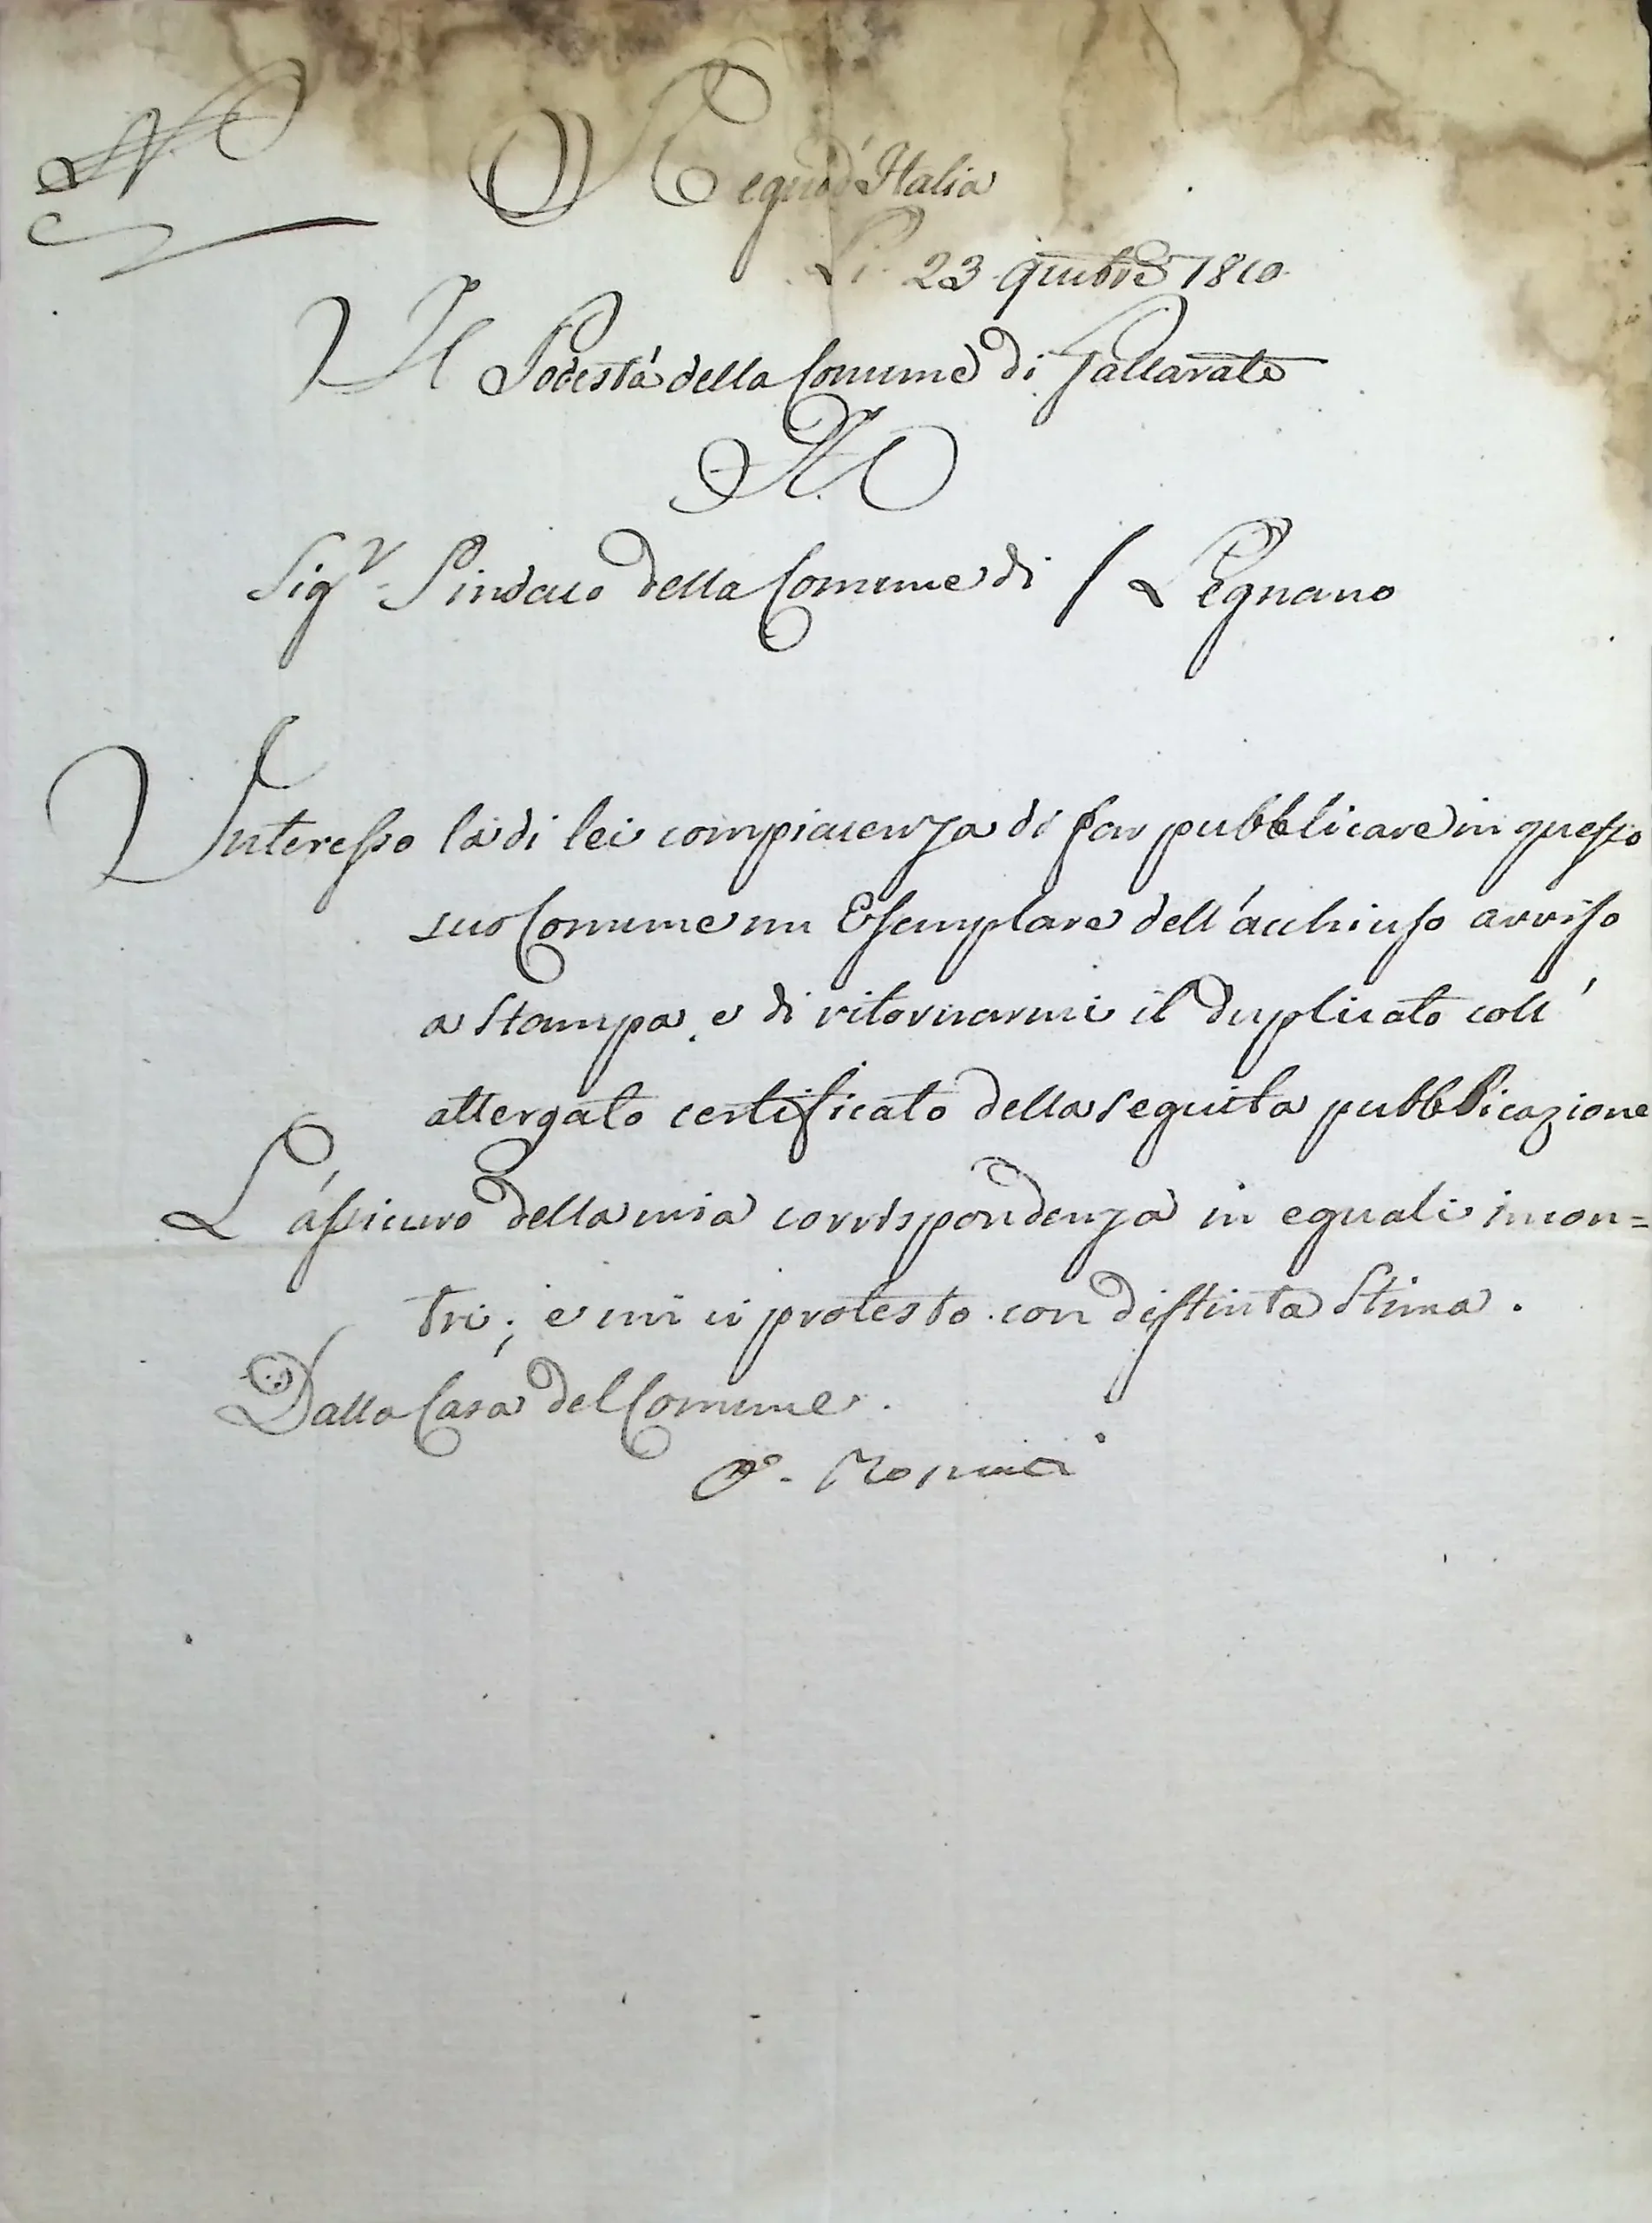 N.
Regno d'Italia
Li 23 9mbre 1810
Il Podestà della Comune di Gallarate
Al
Sigr. Sindaco della Comune di / Legnano
Interesso la di lei compiacenza di far pubblicare in questo
suo Comune un Esemplare dell'acchiuso avviso
a Stampa, e di ritornarmi il duplicato coll'
attergato certificato della seguita pubblicazione
L'assicuro della mia corrispondenza in eguali incon=
tri; e mi ci protesto con distinta Stima.
Dalla Casa del Comune.